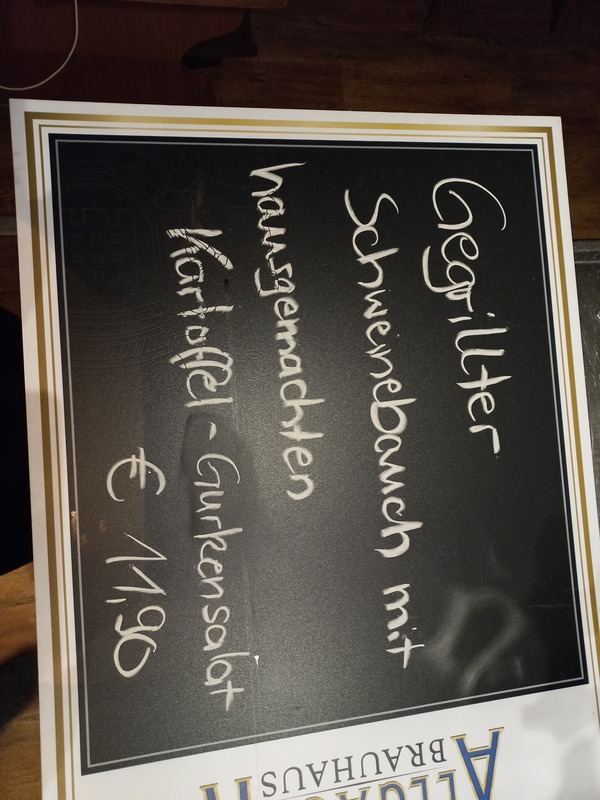 Gegrillter
Schweinebauch mit
hausgemachten
Kartoffel-Gurkensalat
€ 11,90
BRAUHAUS